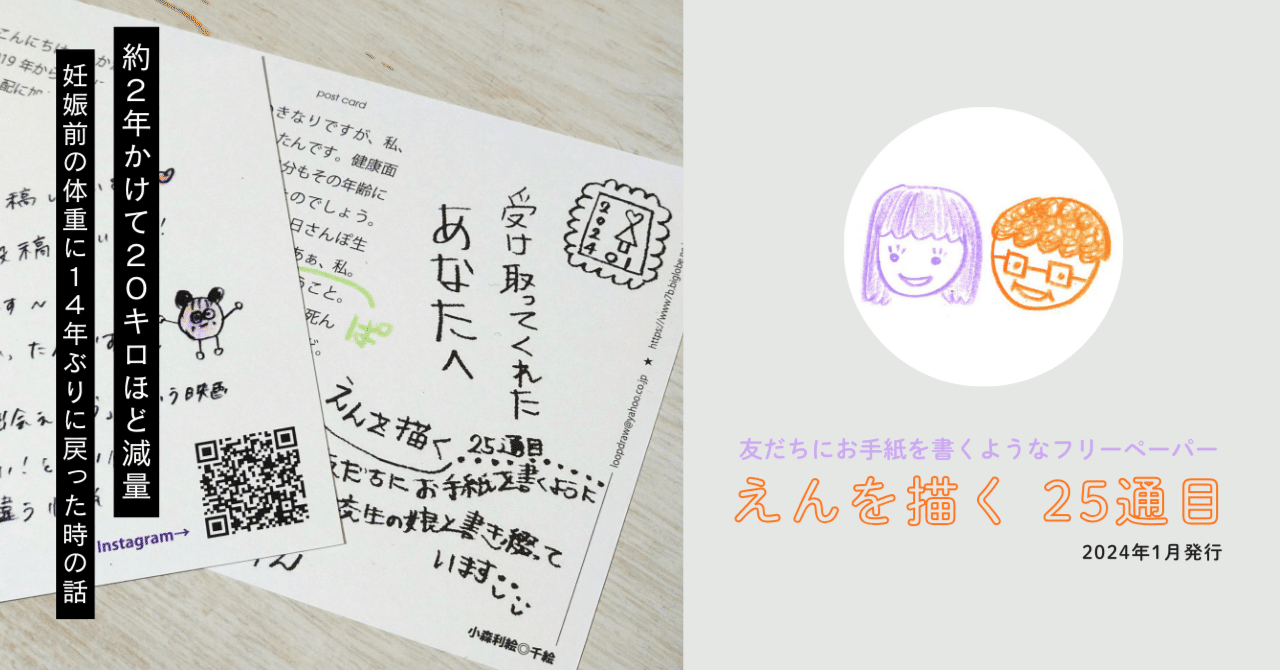 約2年かけて20キロほど減量
妊娠前の体重に14年ぶりに戻った時の話
こんにちは
19年から
配にか
稿し
稿
す～
う映画
Instagram→
post card
きなりですが、私、
たんです。健康面
分もその年齢に
のでしょう。
日さんぽ生
あぁ、私。
うこと。
死ん
ぱ
受け取ってくれた
あなたへ
2024
01
えんを描く
25通目
友だちにお手紙を書くように
生の娘と書き綴って
います
小森利絵◎千絵
loopdraw@yahoo.co.jp ★ https://www7b.biglobe.ne
友だちにお手紙を書くようなフリーペーパー
えんを描く 25通目
2024年1月発行